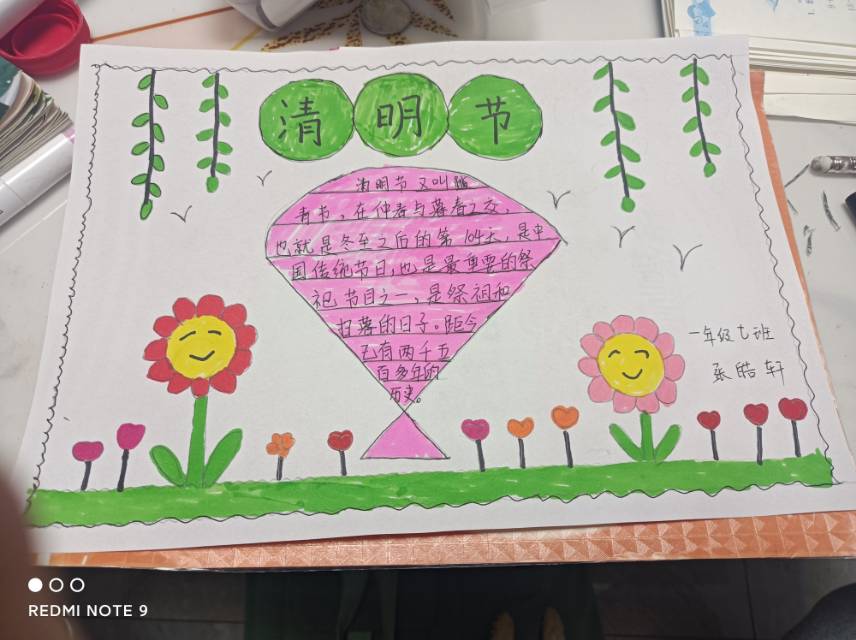 清明节
清明节又叫踏
青节,在仲春与暮春之交,
也就是冬至之后的第104天,是中
国传统节日,也是最重要的祭
祀节日之一,是祭祖和
扫落的日子。距今
已有两千五
百多年的
历史。
一年级七班
张皓轩
REDMI NOTE 9